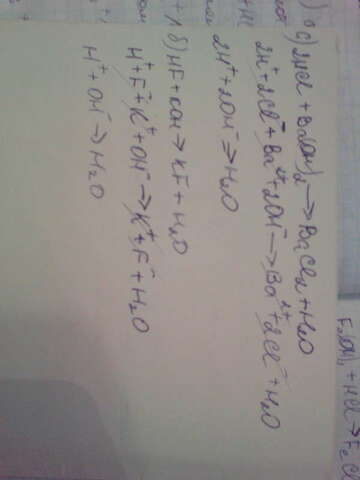 c) 2HCl + Ba(OH)₂ → BaCl₂ + H₂O
2H⁺ + 2Cl⁻ + Ba²⁺ + 2OH⁻ → Ba²⁺ + 2Cl⁻ + H₂O
2H⁺ + 2OH⁻ → H₂O
б) HF + KOH → KF + H₂O
H⁺ + F⁻ + K⁺ + OH⁻ → K⁺ + F⁻ + H₂O
H⁺ + OH⁻ → H₂O
+ HCl → Fe Cl